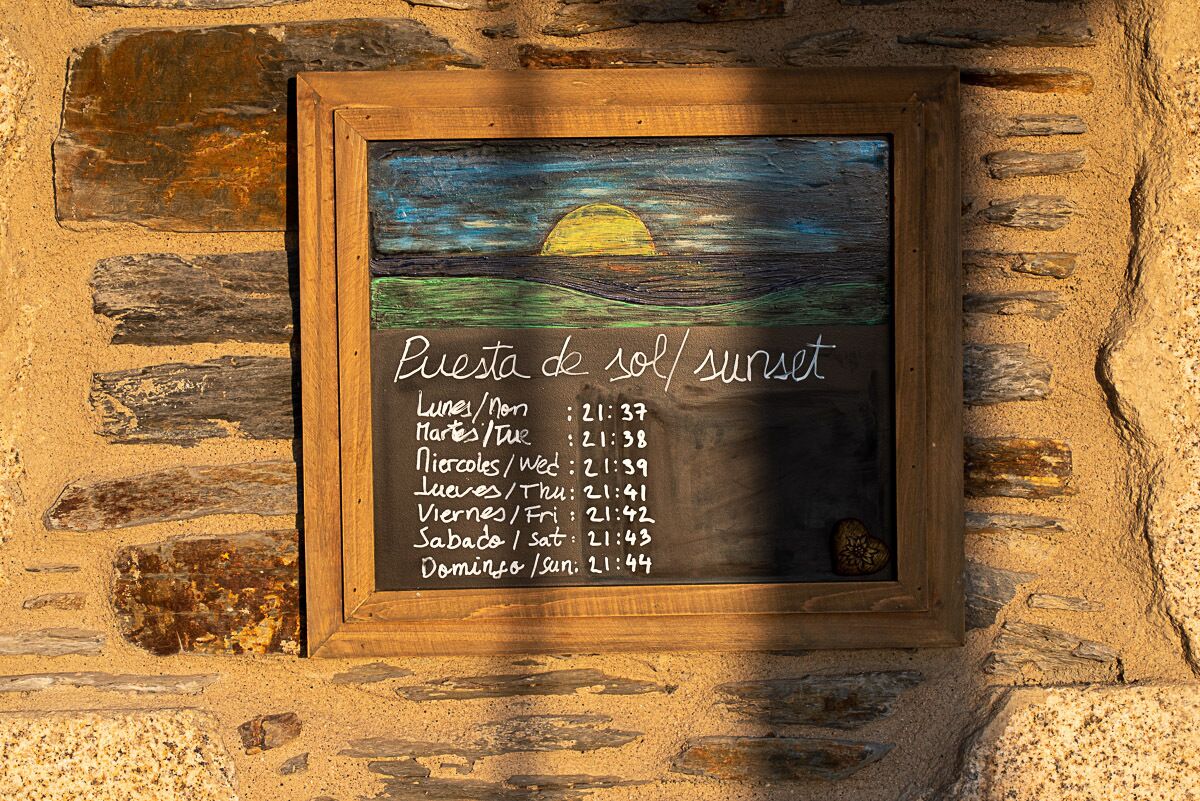 Puesta de sol/sunset
Lunes/Mon : 21:37
Martes/Tue : 21:38
Miercoles/Wed : 21:39
Jueves/Thu: 21:41
Viernes/Fri : 21:42
Sabado/Sat : 21:43
Domingo/Sun: 21:44